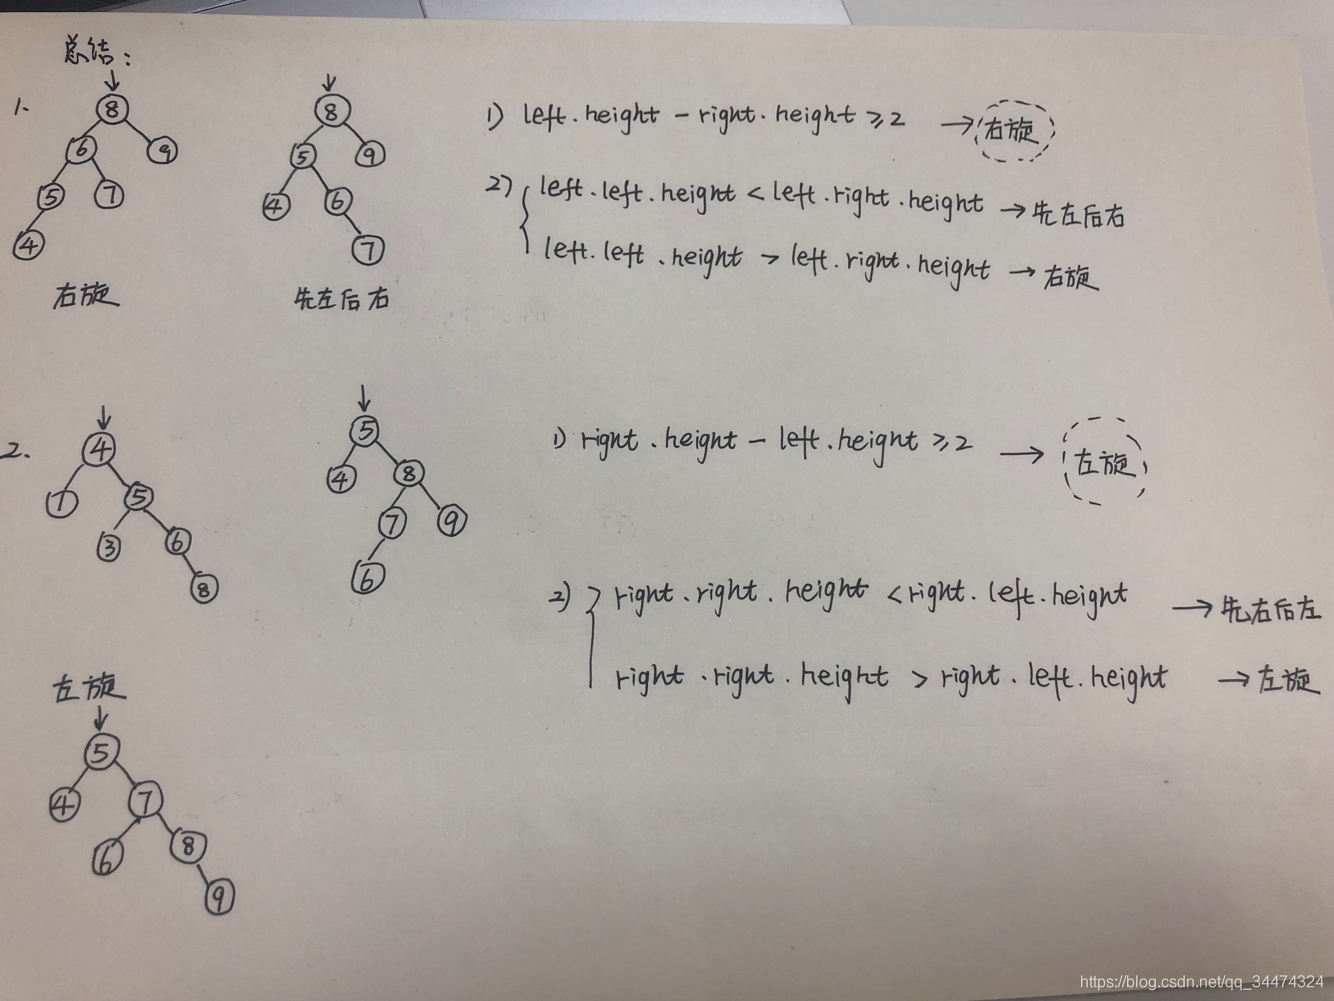 总结：
1.
8
6 9
5 7
4
右旋
8
5 9
4 6
7
先左后右
1) left.height - right.height ≥2 → 右旋
2) { left.left.height < left.right.height → 先左后右
left.left.height > left.right.height → 右旋
2.
4
1 5
3 6
8
5
4 8
7 9
6
1) right.height - left.height ≥2 → 左旋
2) { right.right.height < right.left.height → 先右后左
right.right.height > right.left.height → 左旋
左旋
5
4 7
6 8
9
https://blog.csdn.net/qq_34474324